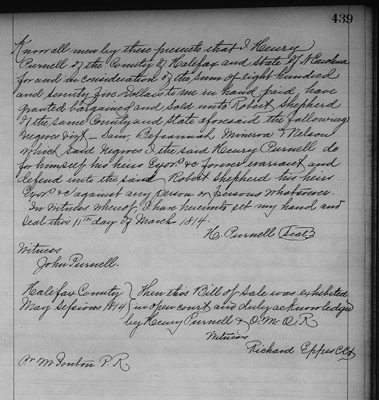 439
Know all men by these presents that I Henry
Purnell of the County of Halifax and State of N Carolina
for and in consideration of the sum of eight hundred
and seventy five Dollars to me in hand paid, have
granted bargained and sold unto Robert Shepherd
of the same County and State aforesaid the following
negroes Viz - Sam, Minerva & Nelson
which said negroes I the said Henry Purnell do
for himself his heirs Exors &c forever warrant and
defend unto the said Robert Shepherd his heirs
Exors &c against any person or persons whatsoever.
In witness whereof I have hereunto set my hand and
seal this 11th day of March 1814.
H. Purnell Seal
Witness
John Purnell.
Halifax County } Then this Bill of Sale was exhibited
May Sessions 1814 } in open court and duly acknowledged
by Henry Purnell & O. M. O. R
Witness
Richard Eppes CCt
P. R.